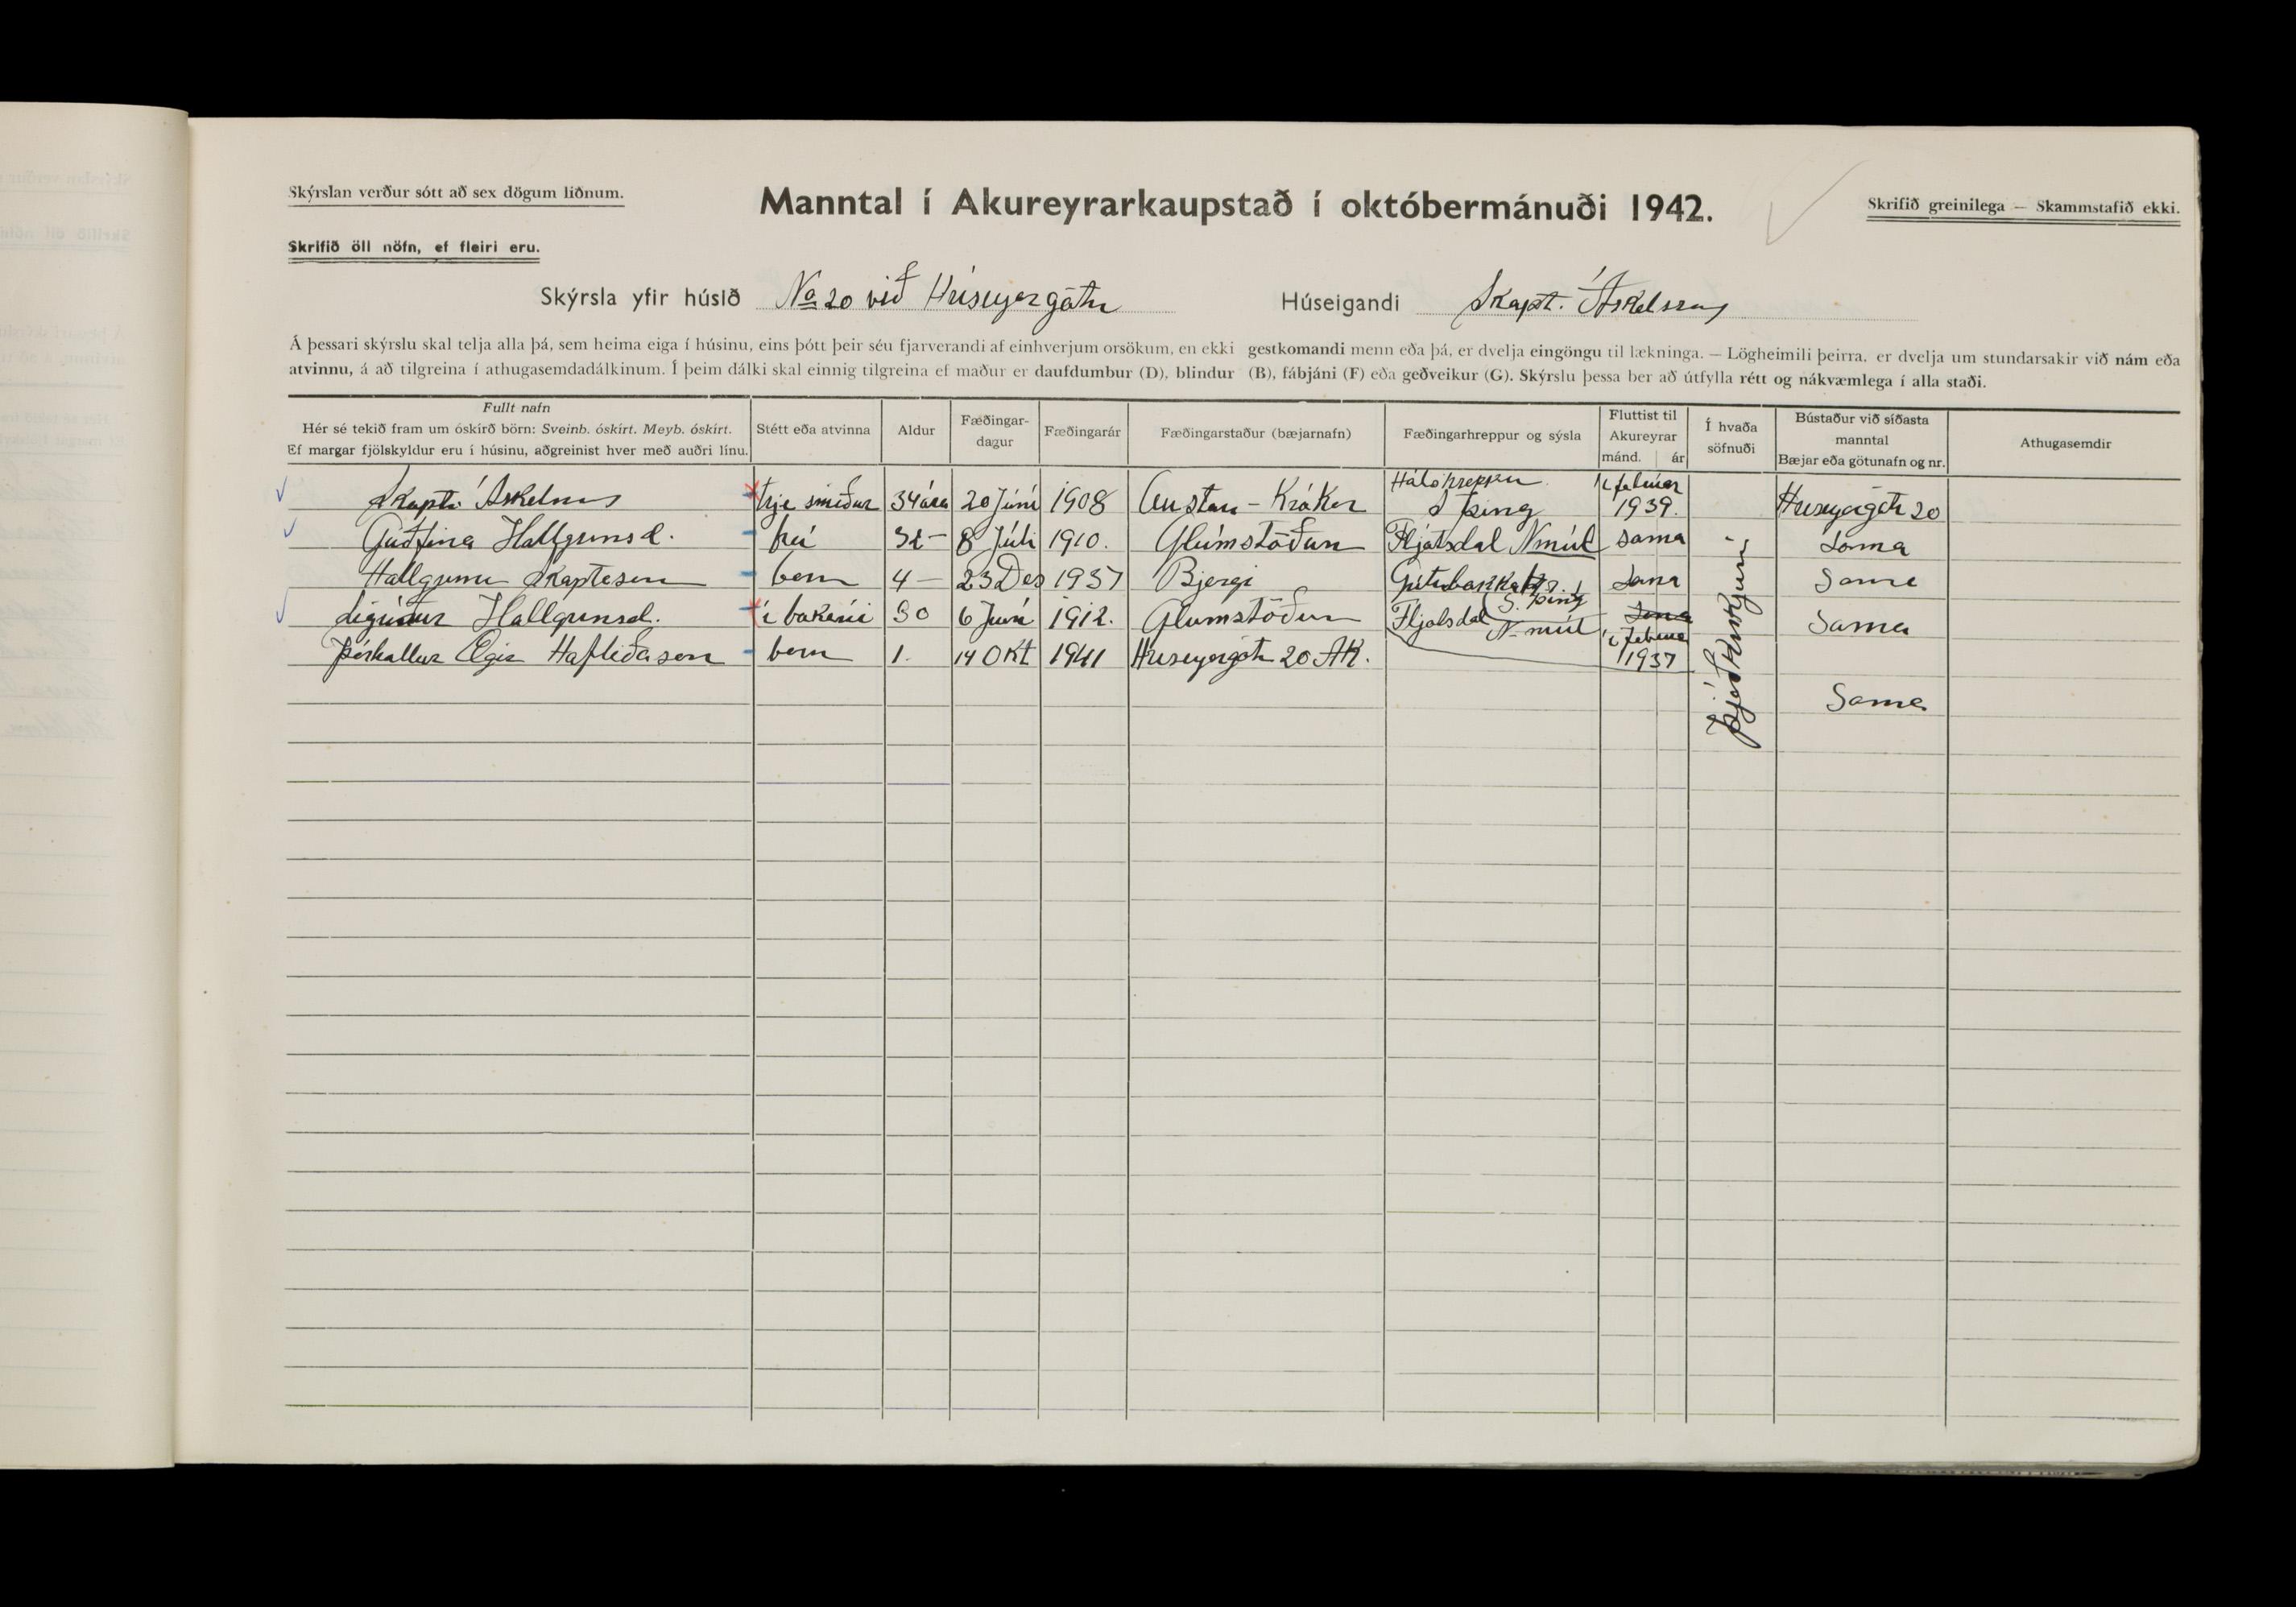 Skýrslan verður sótt að sex dögum liðnum.
Manntal í Akureyrarkaupstað í októbermánuði 1942.
Skrifið greinilega — Skammstafið ekki.
Skrifið öll nöfn, ef fleiri eru.
Skýrsla yfir húsið No 20 við Húseyjargötu Húseigandi Skapt. Áskelsson
Á þessari skýrslu skal telja alla þá, sem heima eiga í húsinu, eins þótt þeir séu fjarverandi af einhverjum orsökum, en ekki gestkomandi menn eða þá, er dvelja eingöngu til lækninga. — Lögheimili þeirra, er dvelja um stundarsakir við nám eða
atvinnu, á að tilgreina í athugasemdadálkinum. Í þeim dálki skal einnig tilgreina ef maður er daufdumbur (D), blindur (B), fábjáni (F) eða geðveikur (G). Skýrslu þessa ber að útfylla rétt og nákvæmlega í alla staði.
Fullt nafn
Hér sé tekið fram um óskírð börn: Sveinb. óskírt. Meyb. óskírt.
Ef margar fjölskyldur eru í húsinu, aðgreinist hver með auðri línu.
Stétt eða atvinna
Aldur
Fæðingar-
dagur
Fæðingarár
Fæðingarstaður (bæjarnafn)
Fæðingarhreppur og sýsla
Fluttist til
Akureyrar
mánd. ár
Í hvaða
söfnuði
Bústaður við síðasta
manntal
Bæjar eða götunafn og nr.
Athugasemdir
Skapti Áskelsson Trje smiður 34 ára 20 Júní 1908 Austari-Krókar Hálshreppur S þing í febrúar 1939. Húseyjargötu 20
Guðfina Hallgrímsd. frú 32 — 8 Júlí 1910. Glúmstöðum Fljótsdal N múl sama sama
Hallgrímur Skaptason barn 4 — 23 Des 1937 Bjargi S. þing sama sama
Sigríður Hallgrímsd. í bakaríi 30 6 Júní 1912. Glumstöðum Fljotsdal N-múl sama í febrúar 1937 sama
Þórhallur Ægir Hafliðason barn 1. 14 Okt 1941 Húseyjargötu 20 AK.
Sama
Þjóðkirkjunni